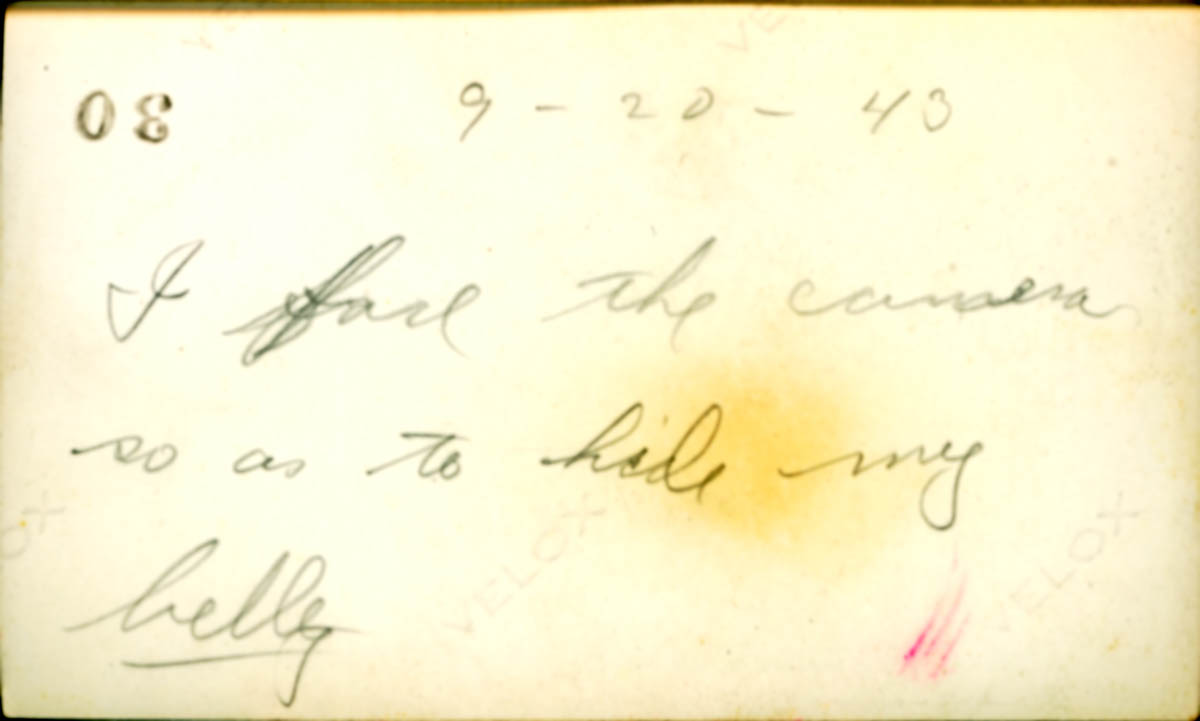 30 9-20-43
I face the camera
so as to hide my
belly
VELOX
VELOX